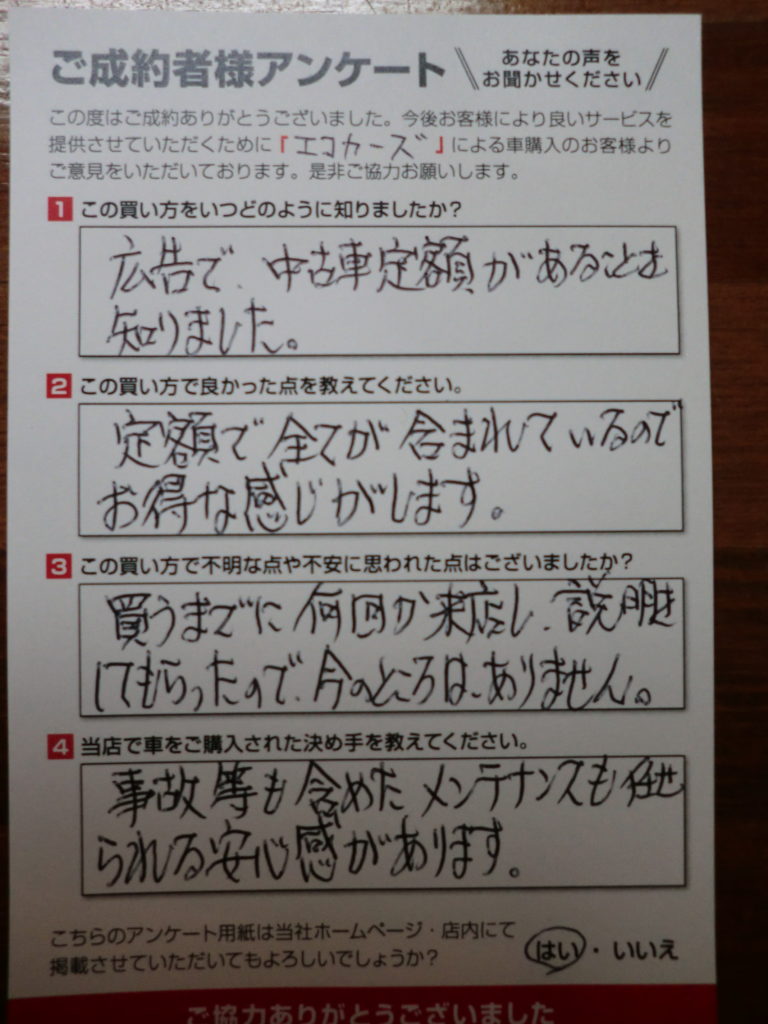 ご成約者様アンケート
あなたの声を
お聞かせください
この度はご成約ありがとうございました。今後お客様により良いサービスを
提供させていただくために「エコカーズ」による車購入のお客様より
ご意見をいただいております。是非ご協力お願いします。
1 この買い方をいつどのように知りましたか？
広告で、中古車定額があることを
知りました。
2 この買い方で良かった点を教えてください。
定額で全てが含まれているので
お得な感じがします。
3 この買い方で不明な点や不安に思われた点はございましたか？
買うまでに何回か来店し、説明を
してもらったので、今のところは、ありません。
4 当店で車をご購入された決め手を教えてください。
事故等も含めたメンテナンスも任せ
られる安心感があります。
こちらのアンケート用紙は当社ホームページ・店内にて
掲載させていただいてもよろしいでしょうか？
はい・いいえ
ご協力ありがとうございました